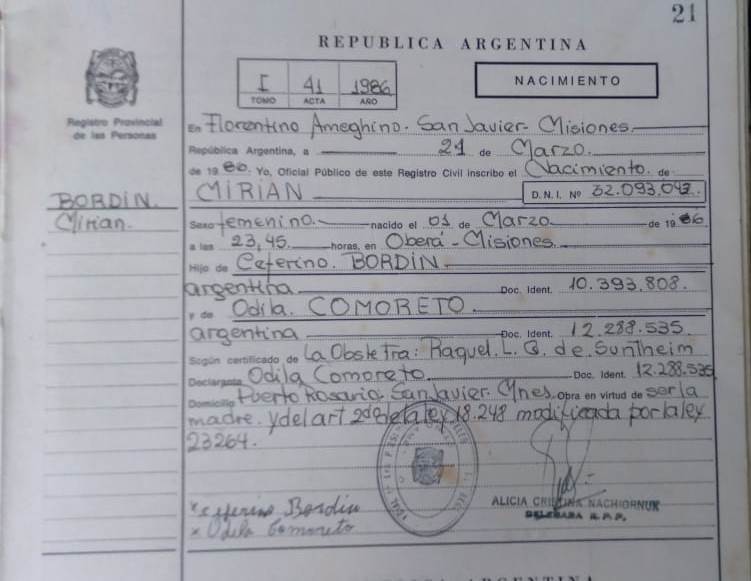 21
REPUBLICA ARGENTINA
I 41 1986
TOMO ACTA AÑO
NACIMIENTO
Registro Provincial
de las Personas
En Florentino Ameghino. San Javier- Misiones
República Argentina, a 21 de Marzo.
de 1986. Yo, Oficial Público de este Registro Civil inscribo el Nacimiento. de
BORDIN.
Mirian.
MIRIAN D.N.I. Nº 32.093.042.
Sexo femenino. nacido el 01 de Marzo de 1986
a las 23,45. horas, en Oberá - Misiones
Hijo de Ceferino. BORDIN
argentina Doc. Ident. 10.393.808.
y de Odila. COMORETO
argentina Doc. Ident. 12.288.535
Según certificado de La Obstetra: Raquel. L. Q. de Suntheim
Declarante Odila Comoreto Doc. Ident. 12.288.535
Domicilio Puerto Rosario. San Javier. Mnes. Obra en virtud de ser la
madre. y del art 2º de la ley 18.248 modificada por la ley
23264.
x Ceferino Bordin
x Odila Comoreto
ALICIA CRISTINA NACHIORNUK
DELEGADA R.P.P.
REPUBLICA ARGENTINA